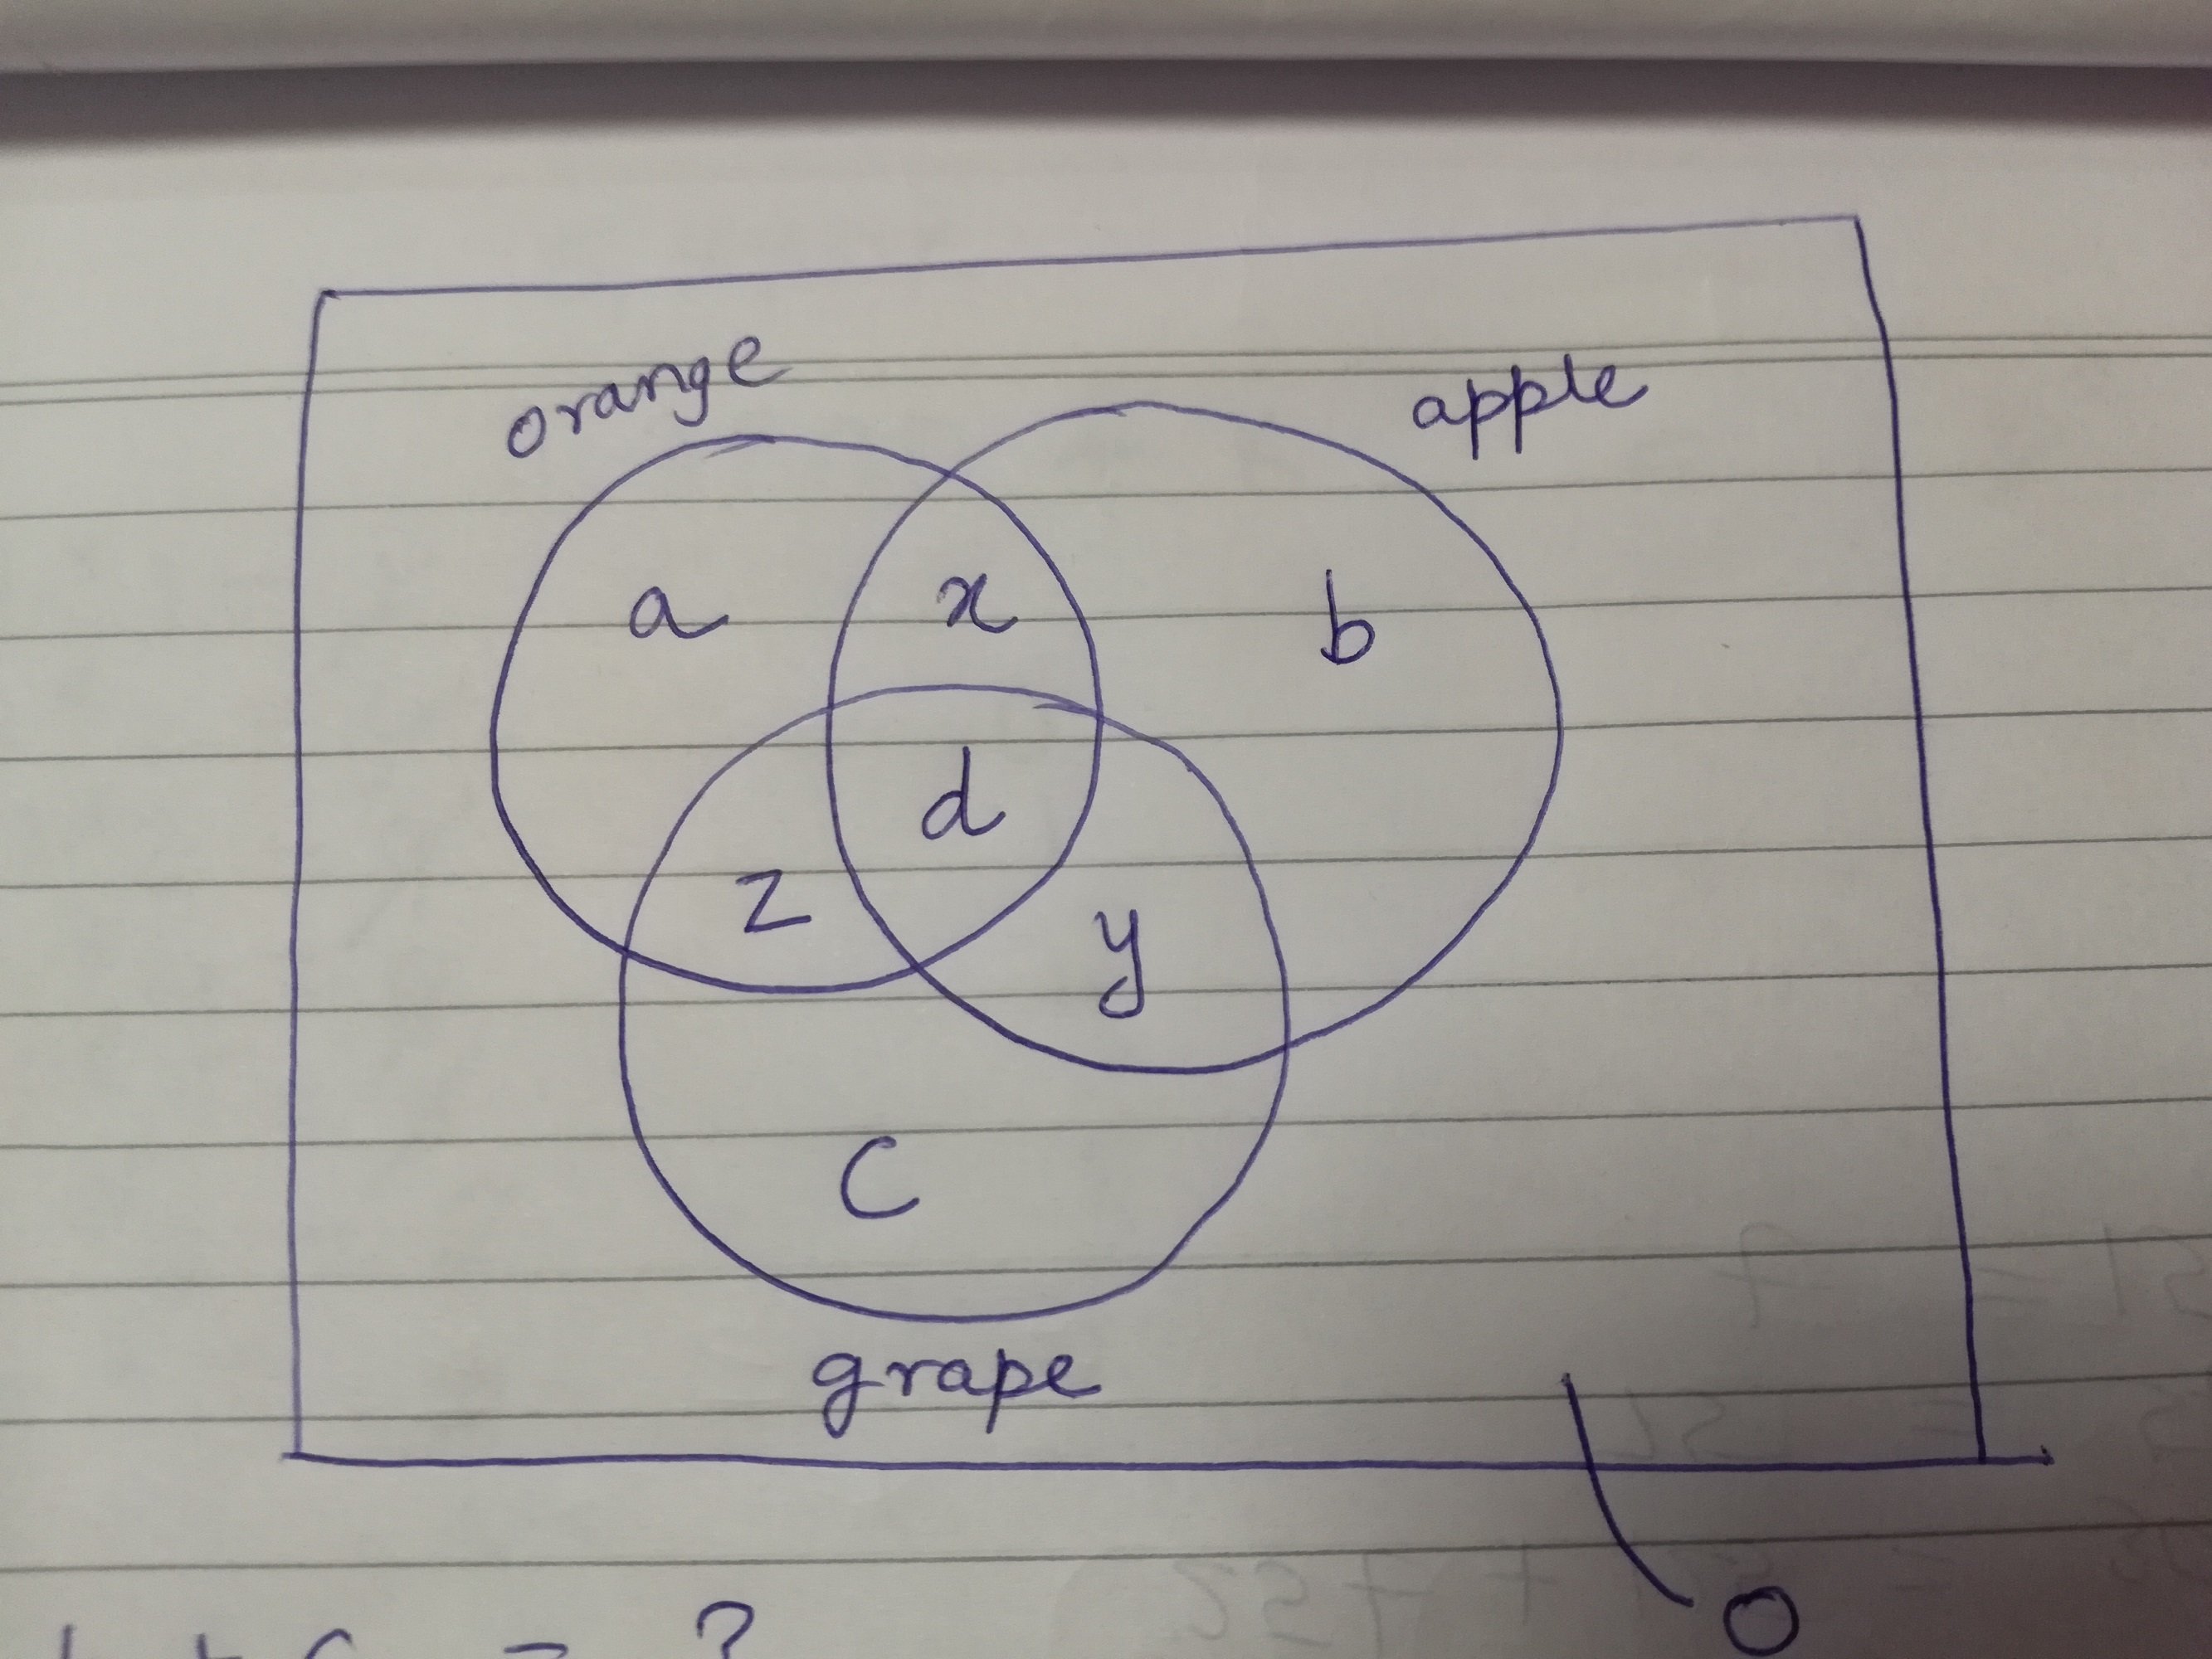 orange
apple
a
x
b
d
z
y
C
grape
O
= ?